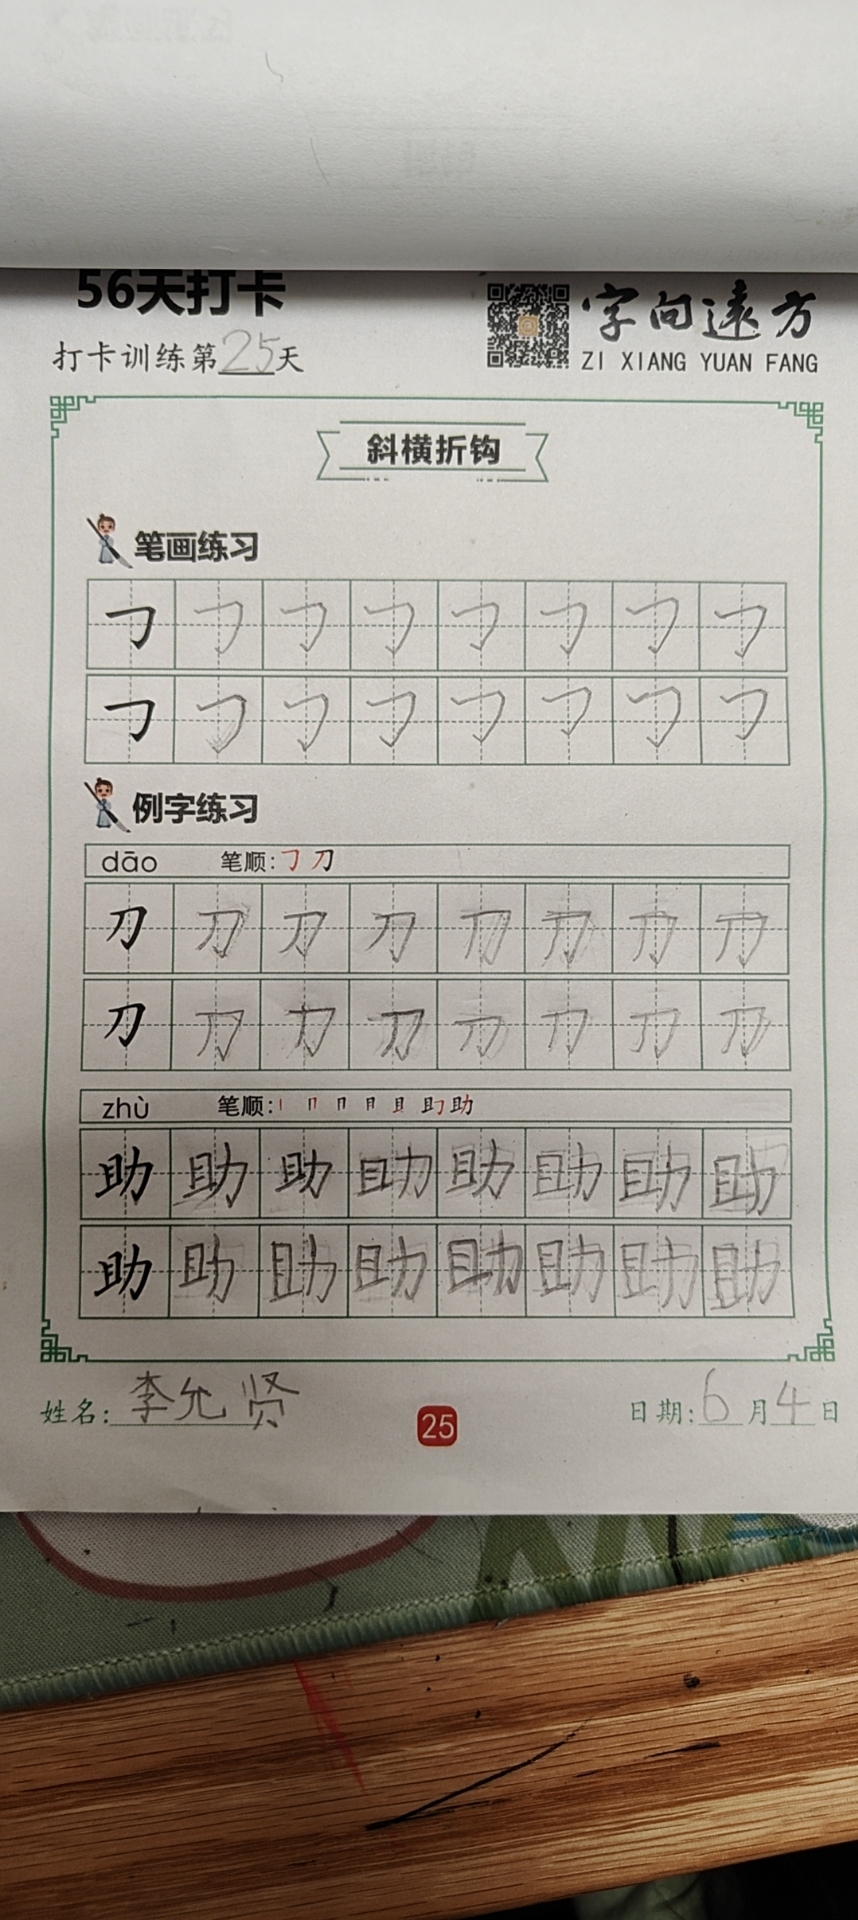 56天打卡
打卡训练第25天
字向遠方
ZI XIANG YUAN FANG
斜横折钩
笔画练习
㇆ ㇆ ㇆ ㇆ ㇆ ㇆ ㇆ ㇆
㇆ ㇆ ㇆ ㇆ ㇆ ㇆ ㇆ ㇆
例字练习
dāo 笔顺: ㇆ 刀
刀 刀 刀 刀 刀 刀 刀 刀
刀 刀 刀 刀 刀 刀 刀 刀
zhù 笔顺: 丨 冂 冃 月 且 助 助
助 助 助 助 助 助 助 助
助 助 助 助 助 助 助 助
姓名: 李允贤
25
日期: 6月4日